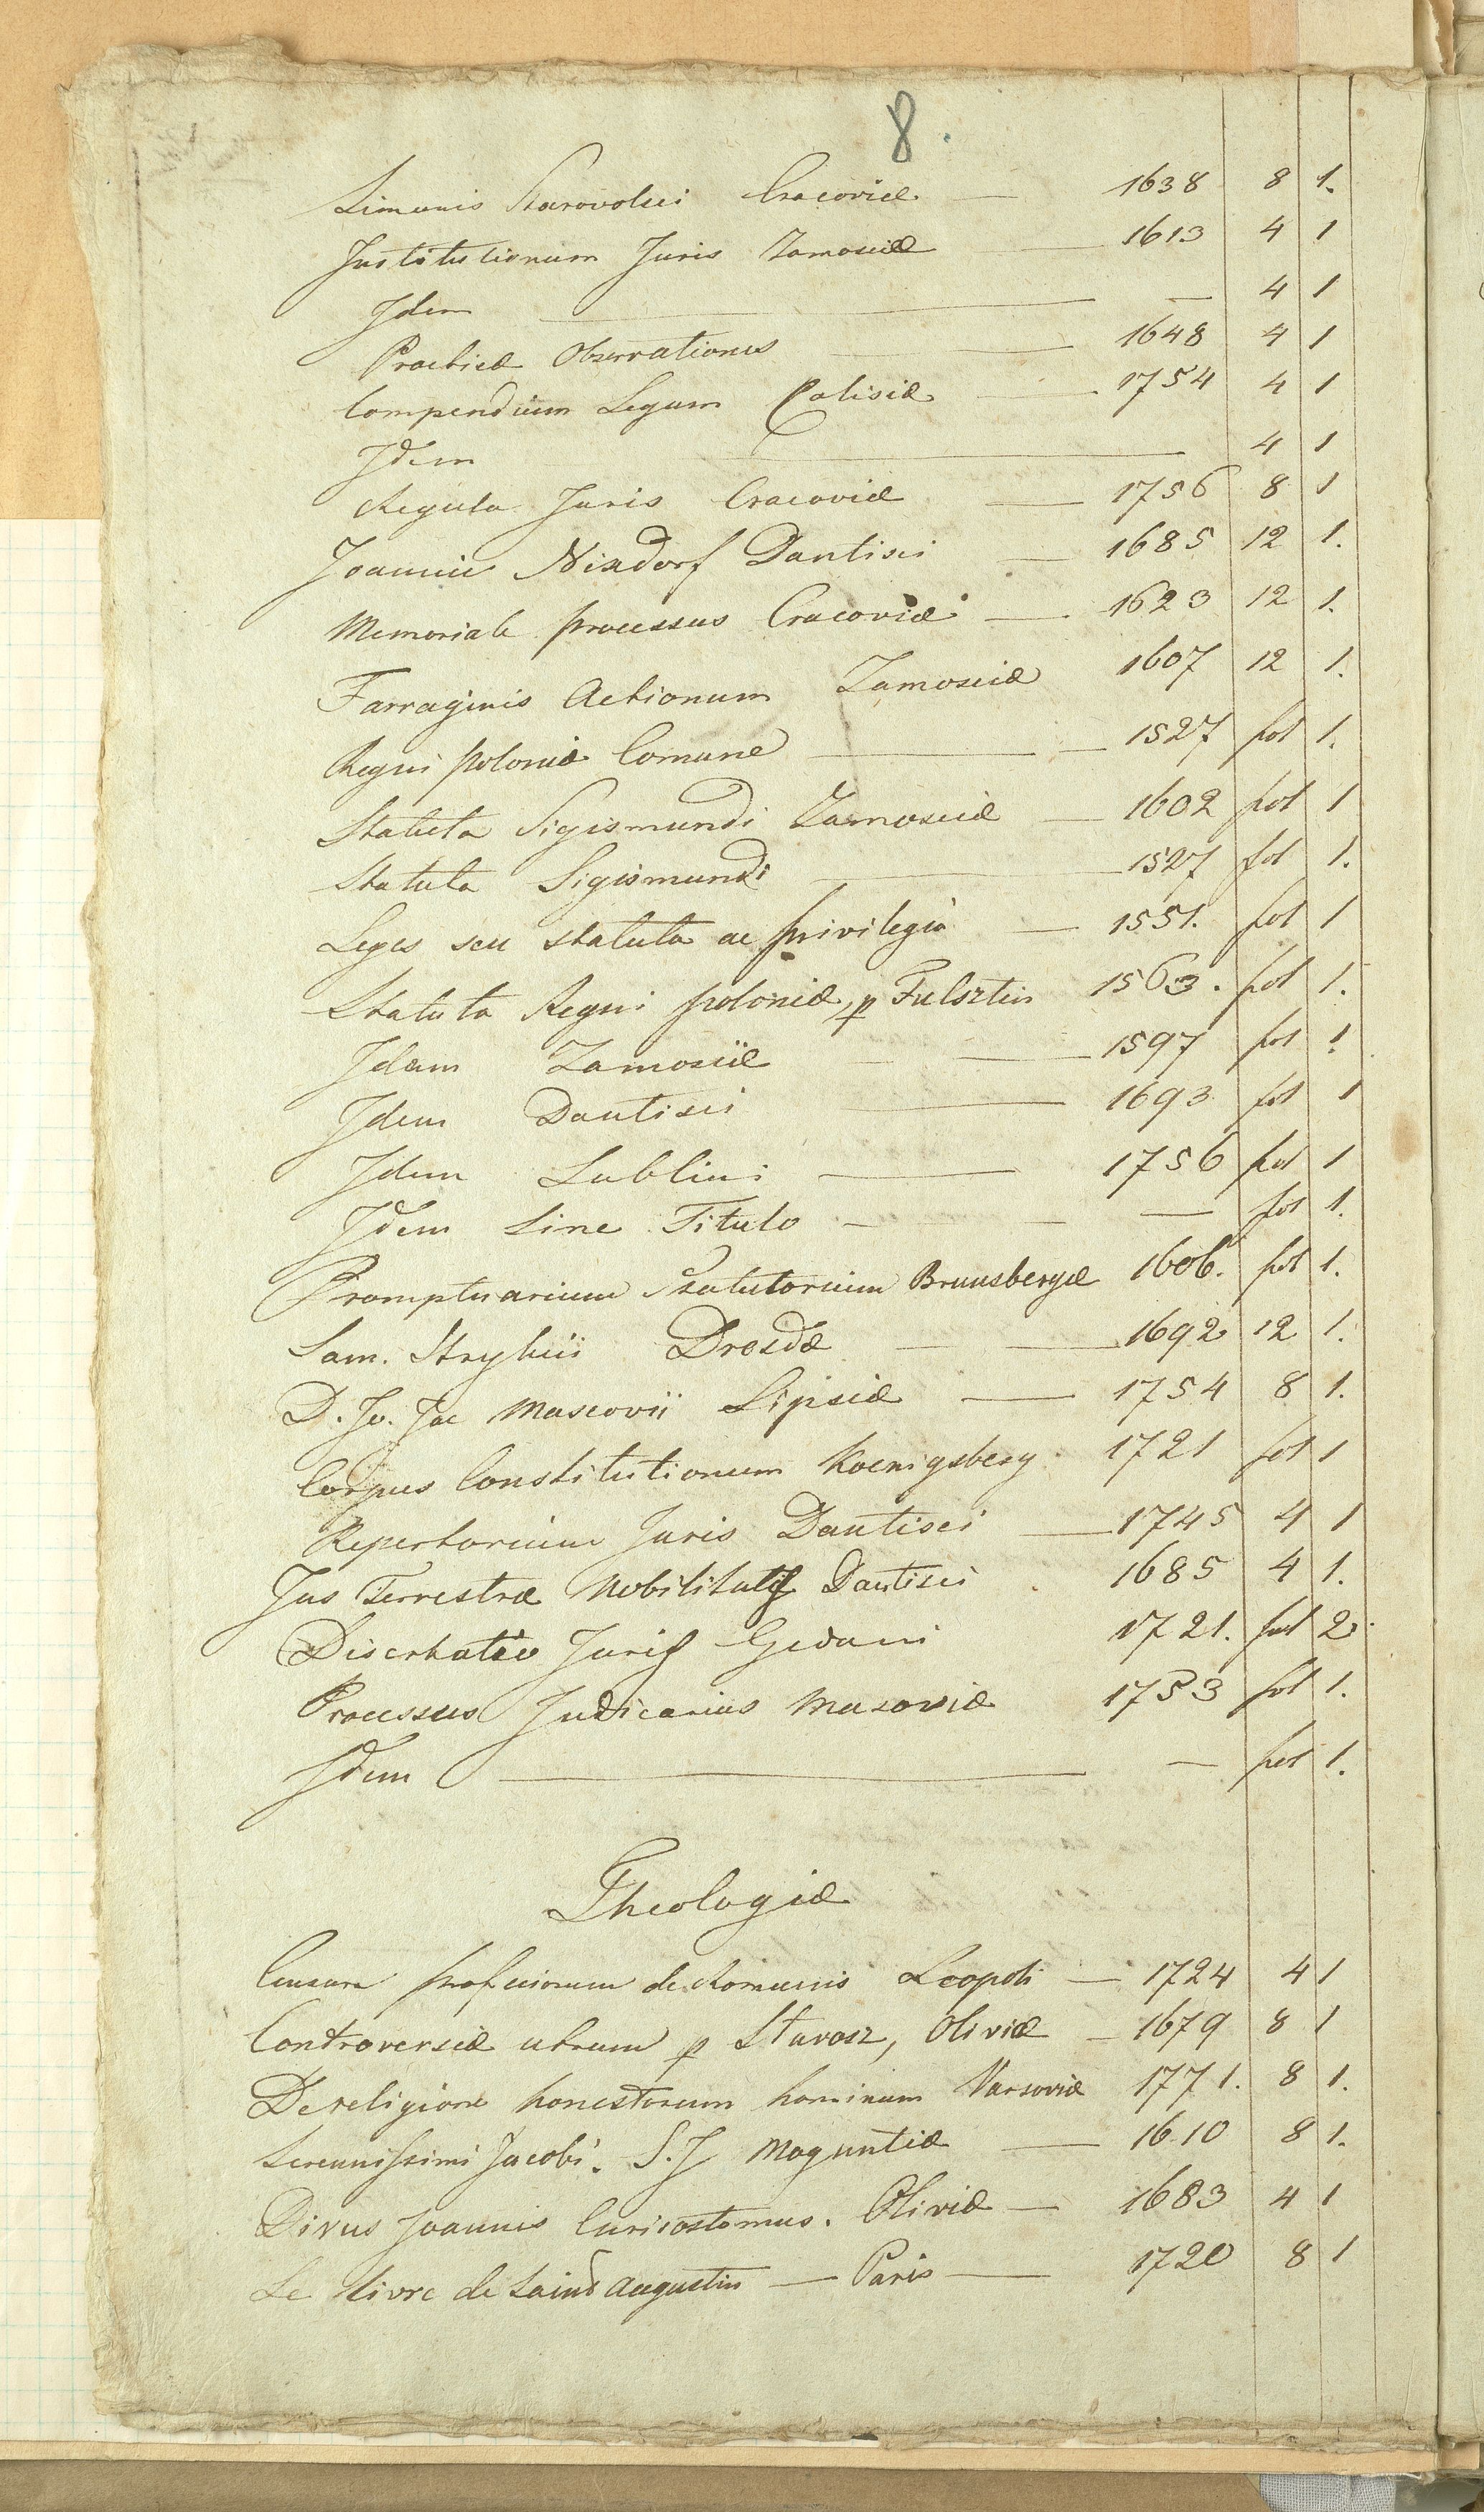 8.
Simonis Starovolsci Cracoviæ — 1638 8 1.
Institutionum Juris Zamosciæ — 1613 4 1
Jdem — — 4 1
Practicæ Observationes — 1648 4 1
Compendium Legum Calisiæ — 1754 4 1
Jdem — 4 1
Regula Juris Cracoviæ — 1756 8 1
Joannis Nixdorf Dantisci — 1685 12 1.
Memoriale processus Cracoviæ — 1623 12 1.
Farraginis Actionum Zamosciæ 1607 12 1.
Regni poloniæ Comune — 1527 fol 1.
Statuta Sigismundi Zamosciæ — 1602 fol 1
Statuta Sigismundi — 1527 fol 1.
Leges seu statuta ac privilegia — 1551. fol 1
Statuta Regni poloniæ, p Fulsztin 1563. fol 1.
Jdem Zamosciæ — 1597 fol 1
Jdem Dantisci — 1693 fol 1
Jdem Lublini — 1756 fol 1
Jdem Sine Titulo — — fol 1.
Promptuarium Statutorium Brunsbergæ 1606. fol 1.
Sam. Strykii Dresdæ — 1692 12 1.
D. Jo. Jac Mascovii Lipsiæ — 1754 8 1.
Corpus Constitutionum Koenigsberg 1721 fol 1
Repertorium Juris Dantisci — 1745 4 1
Jus Terrestræ Nobilitatis Dantisci 1685 4 1.
Disertatio Juris Gedani 1721. fol 2
Processus Judicarius Masoviæ 1753 fol 1.
Jdem — — fol 1.
Theologiæ
Censura de Romanis Leopoli — 1724 4 1
Controversiæ utrum p Starosz, Oliviæ — 1679 8 1
De religione honestorum hominum Varsoviæ 1771. 8 1.
Serennissimi Jacobi. S. J Moguntiæ — 1610 8 1.
Divus Joannis Cursicostomus. Oliviæ — 1683 4 1
Le livre de Saint Augustin — Paris — 1720 8 1